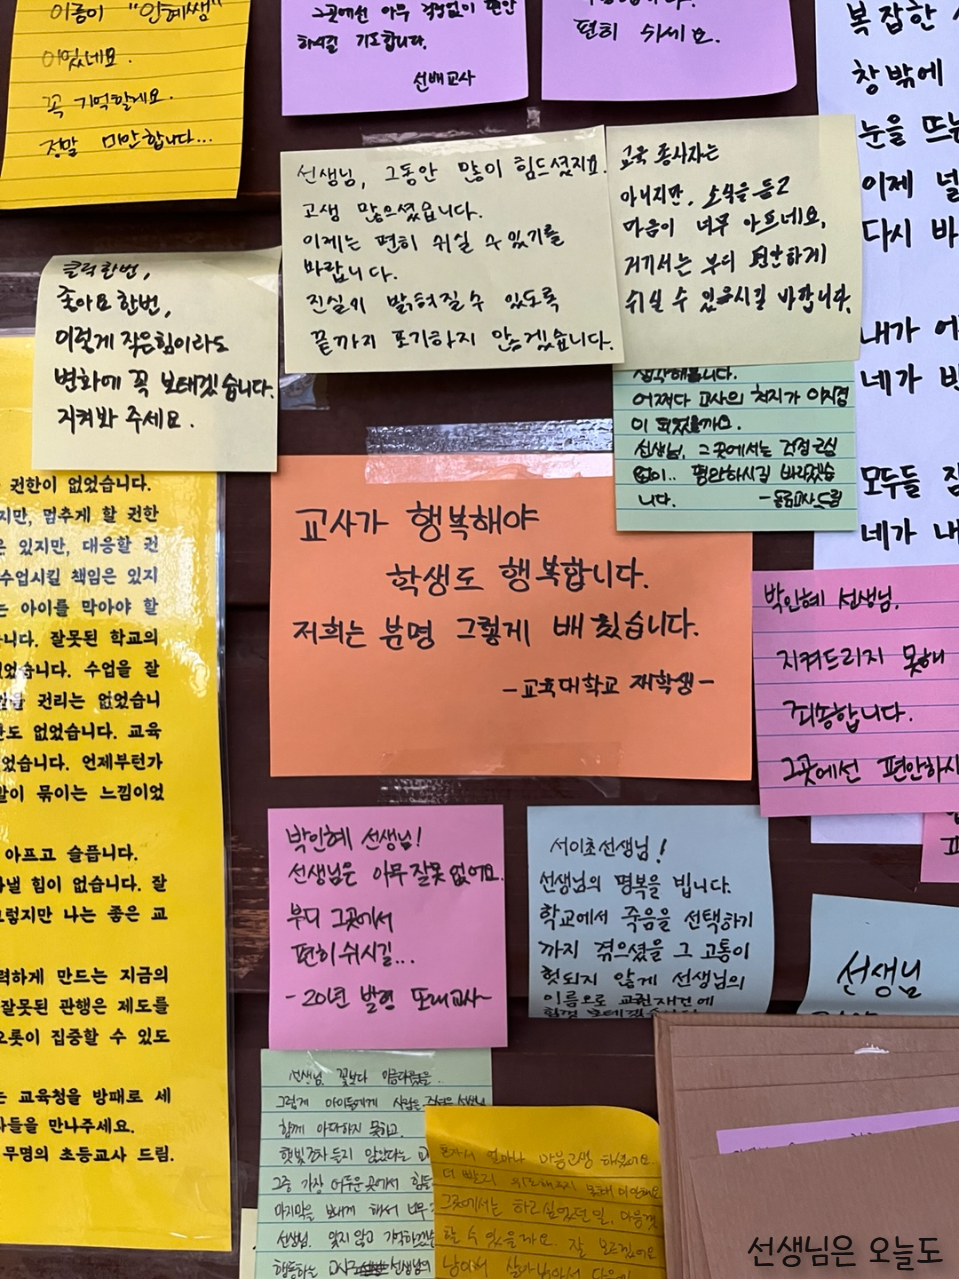 이름이 "인혜쌤"
이었네요.
꼭 기억할게요.
정말 미안합니다...
그곳에선 아무 걱정없이 편안
하시길 기도합니다.
선배교사
편히 쉬세요.
복잡한
창밖에
눈을 뜨는
이제 널
다시 바
내가 어
네가 반
모두들 잠
네가 내
선생님, 그동안 많이 힘드셨지요.
고생 많으셨습니다.
이제는 편히 쉬실 수 있기를
바랍니다.
진실이 밝혀질 수 있도록
끝까지 포기하지 않겠습니다.
교육 종사자는
아니지만, 소식을 듣고
마음이 너무 아프네요,
거기서는 부디 편안하게
쉬실 수 있으시길 바랍니다.
클릭 한번,
좋아요 한번,
이렇게 작은 힘이라도
변화에 꼭 보태겠습니다.
지켜봐 주세요.
생각해봅니다.
어쩌다 교사의 처지가 이지경
이 되었을까요.
선생님, 그곳에서는 걱정근심
없이.. 평안하시길 바라겠습
니다. -동료교사드림
권한이 없었습니다.
지만, 멈추게 할 권한
은 있지만, 대응할 권
수업시킬 책임은 있지
는 아이를 막아야 할
니다. 잘못된 학교의
없었습니다. 수업을 잘
권리는 없었습니
한도 없었습니다. 교육
었습니다. 언제부턴가
발이 묶이는 느낌이었
아프고 슬픕니다.
낼 힘이 없습니다. 잘
그렇지만 나는 좋은 교
력하게 만드는 지금의
잘못된 관행은 제도를
오롯이 집중할 수 있도
는 교육청을 방패로 세
사들을 만나주세요.
무명의 초등교사 드림.
교사가 행복해야
학생도 행복합니다.
저희는 분명 그렇게 배웠습니다.
-교육대학교 재학생-
박인혜 선생님.
지켜드리지 못해
죄송합니다.
그곳에선 편안하시
박인혜 선생님!
선생님은 아무 잘못 없어요.
부디 그곳에서
편히 쉬시길...
-20년 발령 또래교사-
서이초선생님!
선생님의 명복을 빕니다.
학교에서 죽음을 선택하기
까지 겪으셨을 그 고통이
헛되지 않게 선생님의
이름으로 교권재건에
힘껏 보태겠습니다
선생님
선생님 꽃보다 아름다웠을..
그렇게 아이들에게 사랑을 주셨을 선생님
함께 아파하지 못하고
햇빛조차 들지 않았다는
그중 가장 어두운 곳에서 힘들
마지막을 보내게 해서 너무
선생님. 잊지 않고 기억하겠습
행동하는 교사 선생님의
혼자서 얼마나 마음고생 하셨어요
더 빨리 위로해주지 못해 미안해요
그곳에서는 하고싶었던 일, 마음껏
할 수 있을까요. 잘 모르겠어요
남아서 살아남아서 다음에
선생님은 오늘도